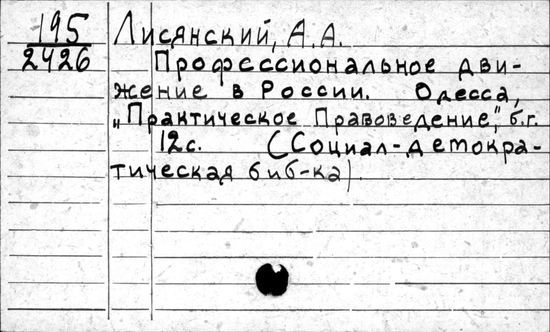 195
2426
Лисянский, А.А.
Профессиональное дви-
жение в России. Одесса,
„Практическое Правоведение", б.г.
12с. (Социал-демокра-
тическая биб-ка)